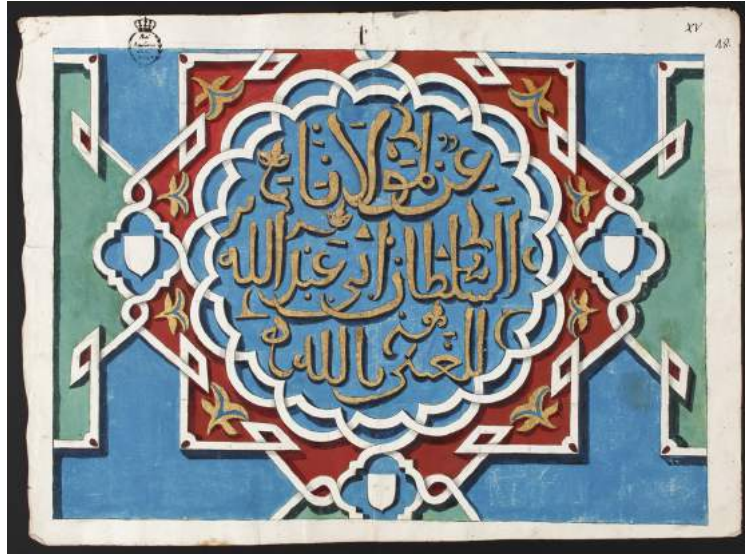 XV
48.
عز لمولانا
السلطان ابي عبد الله
الغني بالله